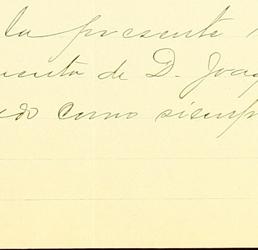 la presente
de D. Joaq
como siemp